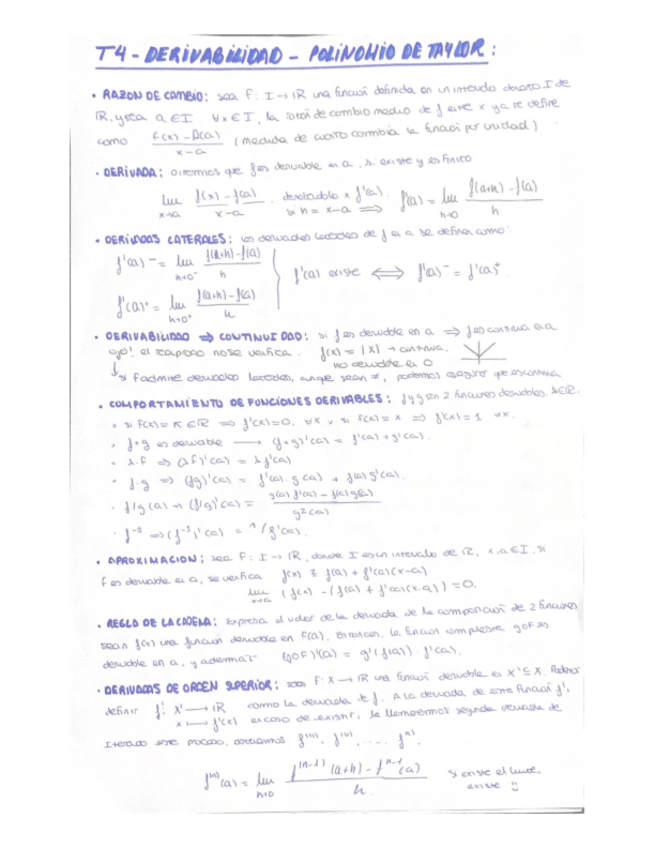 T4 - DERIVABILIDAD - POLINOMIO DE TAYLOR:
• RAZON DE CAMBIO: sea f: I → IR una función definida en un intervalo abierto I de
IR, y sea a ∈ I ∀x ∈ I, la razón de cambio medio de f entre x y a se define
como (f(x) - f(a)) / (x - a) (medida de cuanto cambia la función por unidad)
• DERIVADA: Diremos que f es derivable en a, si existe y es finito
lim x→a (f(x) - f(a)) / (x - a) . denotado x f'(a). si h = x-a ⟹ f'(a) = lim h→0 (f(a+h) - f(a)) / h
• DERIVADAS LATERALES: las derivadas laterales de f en a se definen como:
f'(a)⁻ = lim h→0⁻ (f(a+h) - f(a)) / h
f'(a) existe ⟺ f'(a)⁻ = f'(a)⁺
f'(a)⁺ = lim h→0⁺ (f(a+h) - f(a)) / h
• DERIVABILIDAD ⟹ CONTINUIDAD: si f es derivable en a ⟹ f es continua en a
ojo! el recíproco no se verifica. f(x) = |x| → continua.
no derivable en 0
↳ si f admite derivadas laterales, aunque sean ≠, podemos asegurar que es continua
• COMPORTAMIENTO DE FUNCIONES DERIVABLES: f y g son 2 funciones derivables, λ∈IR.
• si f(x) = K ∈ IR ⟹ f'(x) = 0, ∀x • si f(x) = x ⟹ f'(x) = 1 ∀x.
• f+g es derivable ⟶ (f+g)'(a) = f'(a) + g'(a).
• λ·f ⟹ (λf)'(a) = λf'(a)
• f·g ⟹ (fg)'(a) = f'(a)·g(a) + f(a)g'(a).
• f/g (a) ⟹ (f/g)'(a) = (g(a)f'(a) - f(a)g'(a)) / g²(a)
• f⁻¹ ⟹ (f⁻¹)'(a) = 1/f'(a).
• APROXIMACION: sea f: I → IR, donde I es un intervalo de IR, x,a ∈ I, si
f es derivable en a, se verifica f(x) ≅ f(a) + f'(a)(x-a)
lim x→a (f(x) - (f(a) + f'(a)(x-a)) = 0.
• REGLA DE LA CADENA: Expresa el valor de la derivada de la composición de 2 funciones
sean f(x) una función derivable en f(a). Entonces, la función compuesta gof es
derivable en a, y además (gof)'(a) = g'(f(a))·f'(a).
• DERIVADAS DE ORDEN SUPERIOR: sea f: X → IR una función derivable en X' ⊆ X. Podemos
definir f': X' → IR como la derivada de f. A la derivada de esta función f',
x ⟼ f'(x) en caso de existir, la llamaremos segunda derivada de
Iterado este proceso, obtenemos f''', f⁽ⁱᵛ⁾, .... f⁽ⁿ⁾.
f⁽ⁿ⁾(a) = lim h→0 (f⁽ⁿ⁻¹⁾(a+h) - fⁿ⁻¹(a)) / h. si existe el limite,
existe